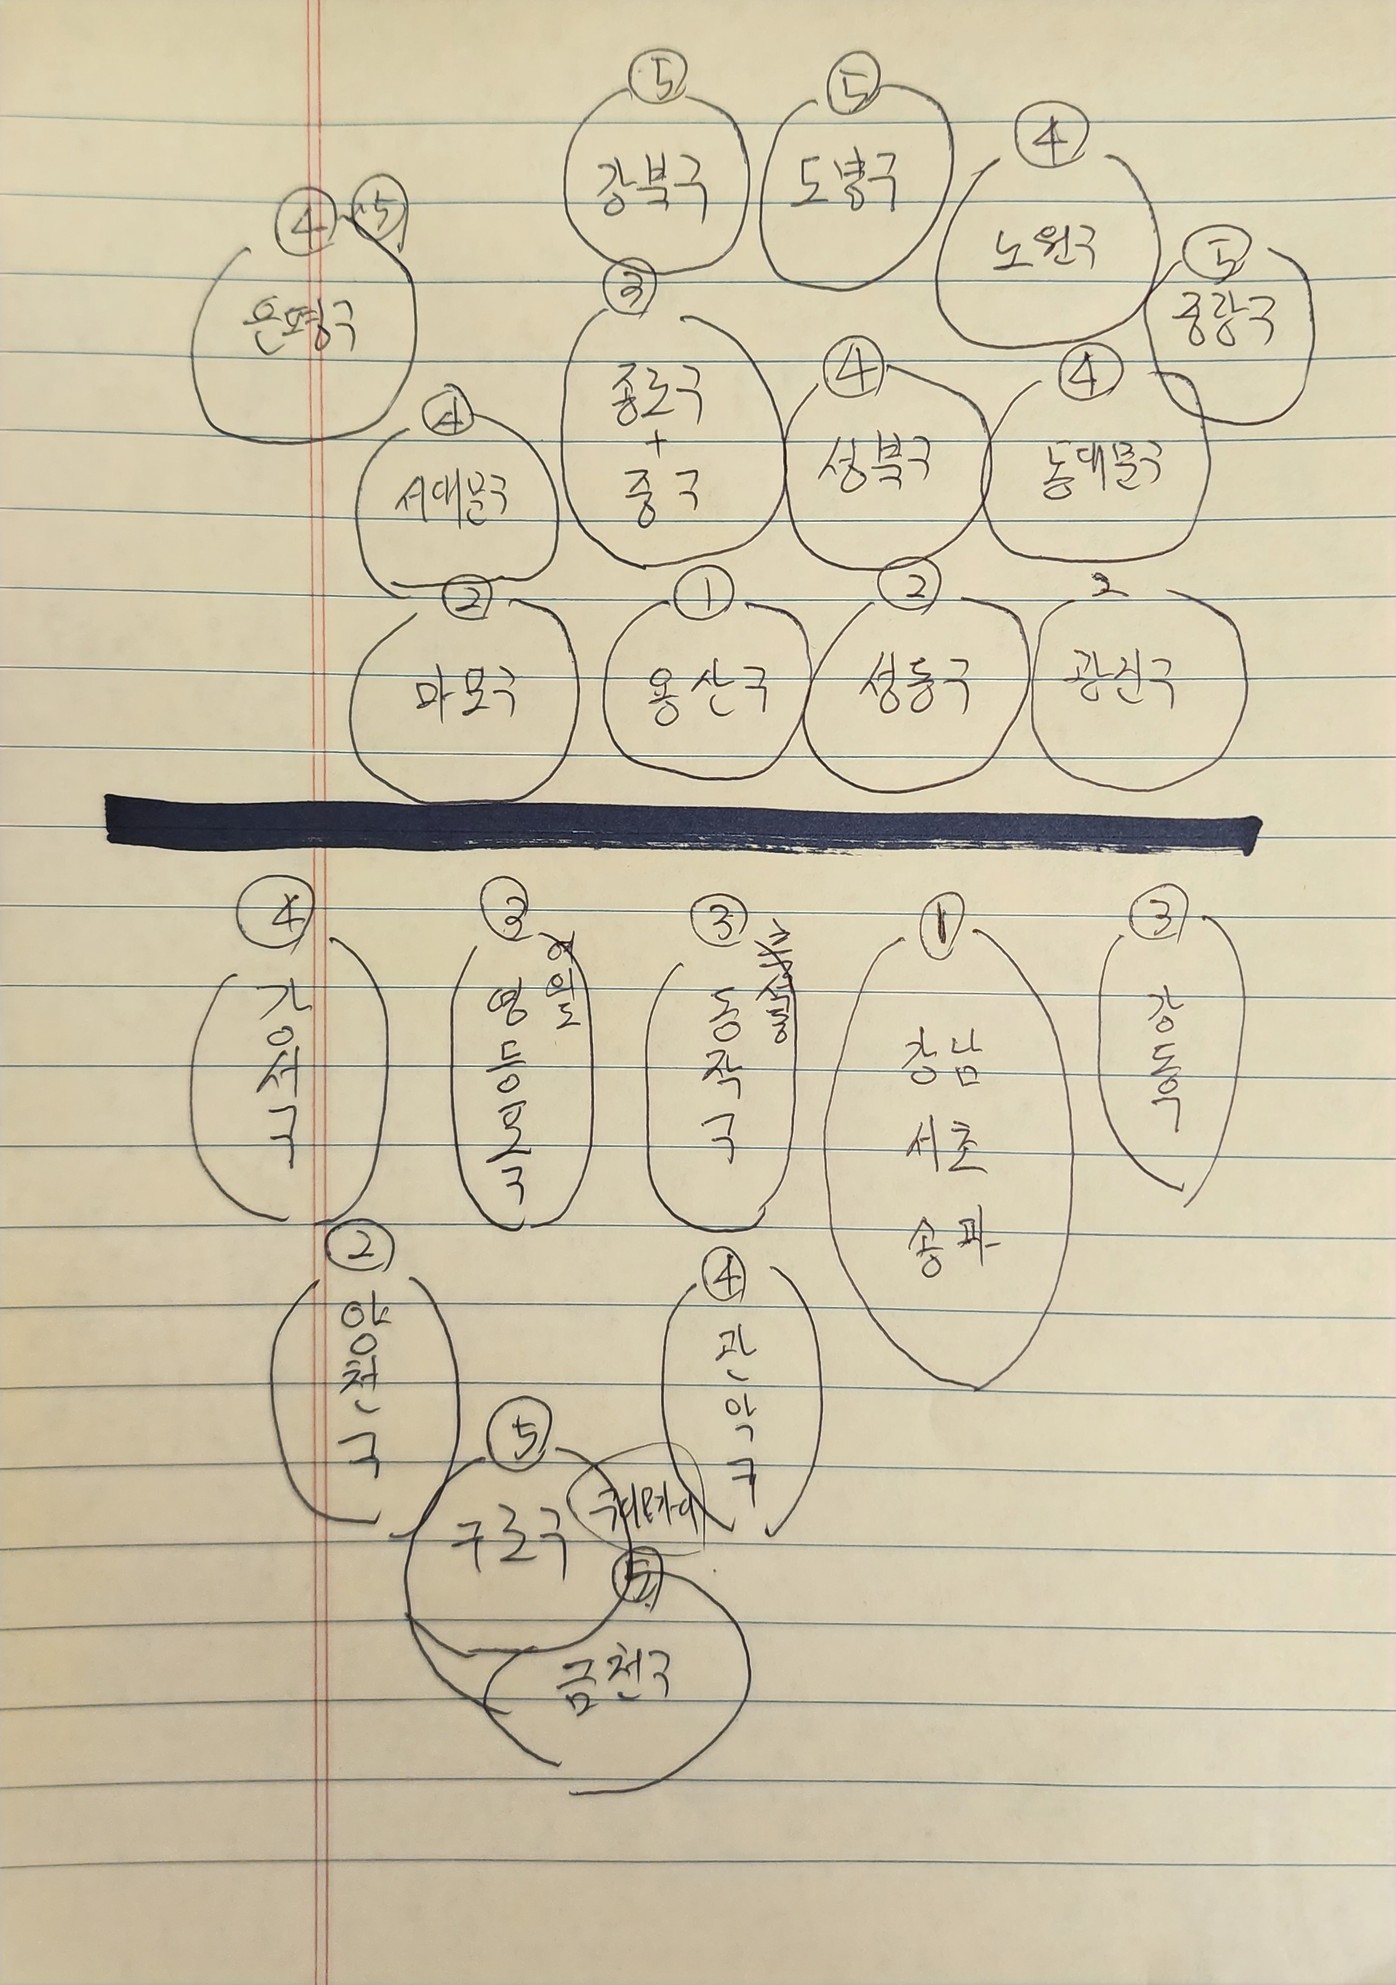 ⑤
강북구
⑤
도봉구
④
노원구
⑤
중랑구
④~⑤
은평구
③
종로구
+
중구
④
성북구
④
동대문구
④
서대문구
②
마포구
①
용산구
②
성동구
2
광진구
④
강서구
③
영등포구
여의도
③
동작구
흑석동
①
강남
서초
송파
③
강동구
②
양천구
④
관악구
⑤
구로구
⑤
금천구